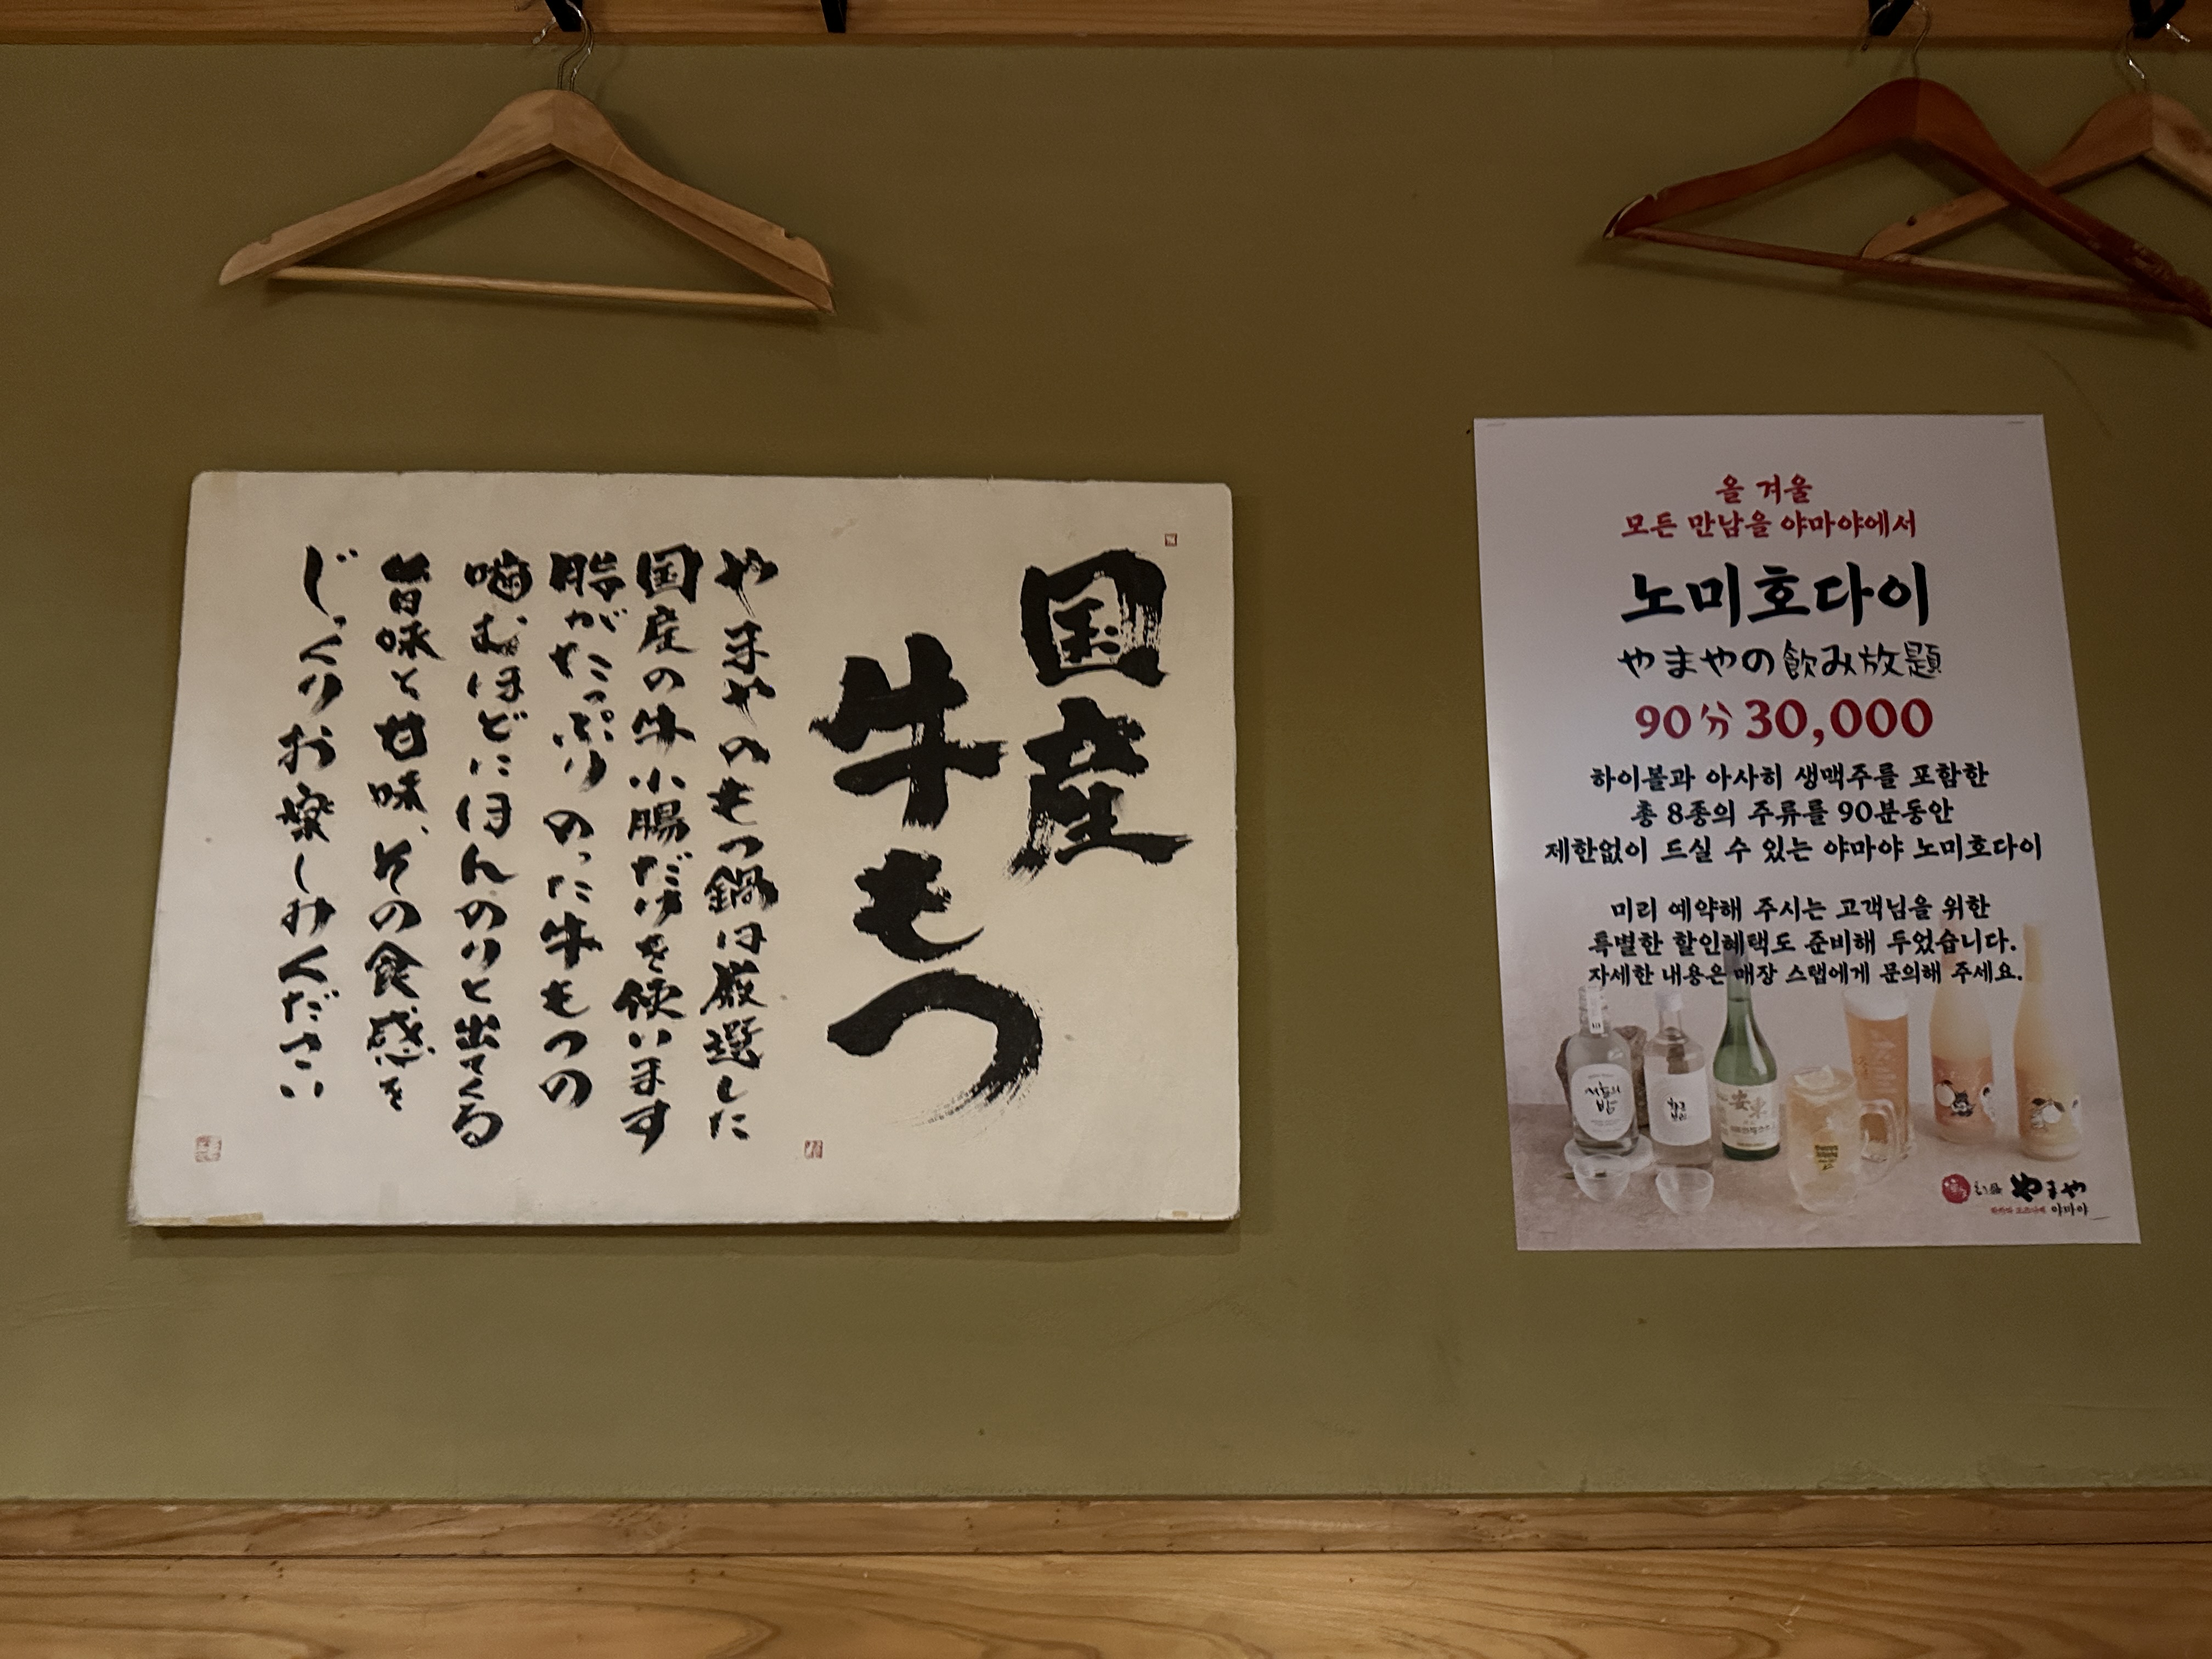 国産
牛もつ
やまやのもつ鍋は厳選した
国産の牛小腸だけを使います
脂がたっぷりのった牛もつの
噛むほどにほんのりと出てくる
旨味と甘味、その食感を
じっくりお楽しみください
올 겨울
모든 만남을 야마야에서
노미호다이
やまやの飲み放題
90分 30,000
하이볼과 아사히 생맥주를 포함한
총 8종의 주류를 90분동안
제한없이 드실 수 있는 야마야 노미호다이
미리 예약해 주시는 고객님을 위한
특별한 할인혜택도 준비해 두었습니다.
자세한 내용은 매장 스탭에게 문의해 주세요.
서울의
밤
やまや
야마야